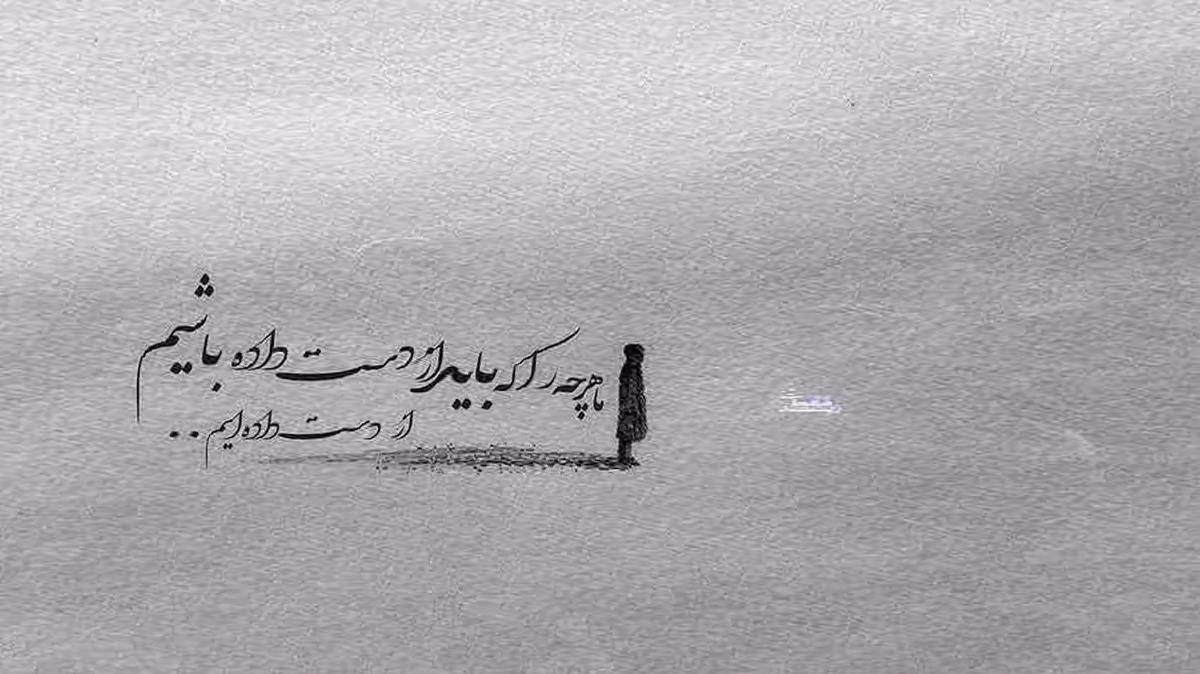 ما هرچه را که باید از دست داده باشیم
از دست داده ایم..